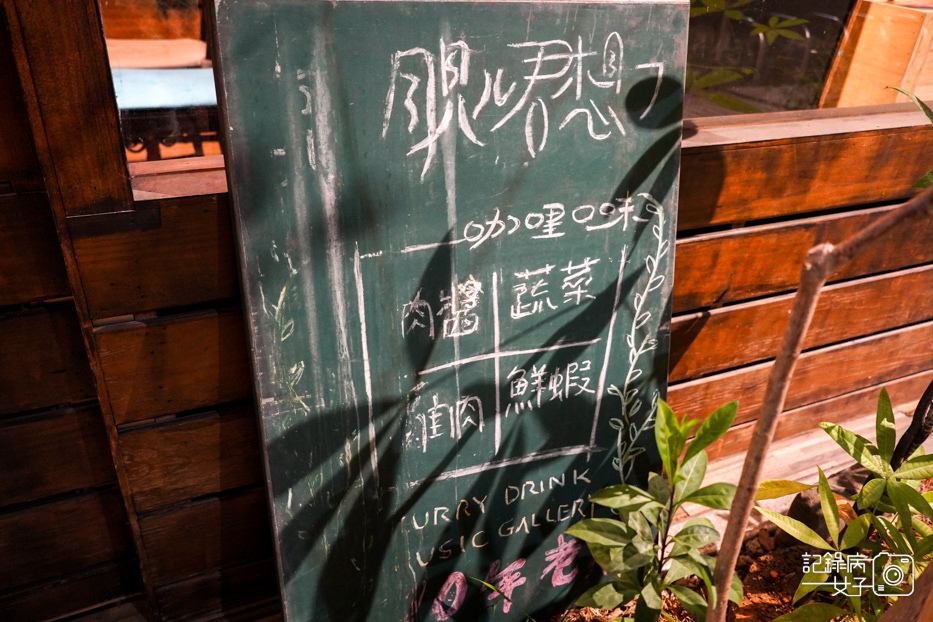 眼兒君想
咖哩口味
肉醬 蔬菜
雞肉 鮮蝦
CURRY DRINK
MUSIC GALLERY
10年老
記錄病
女子